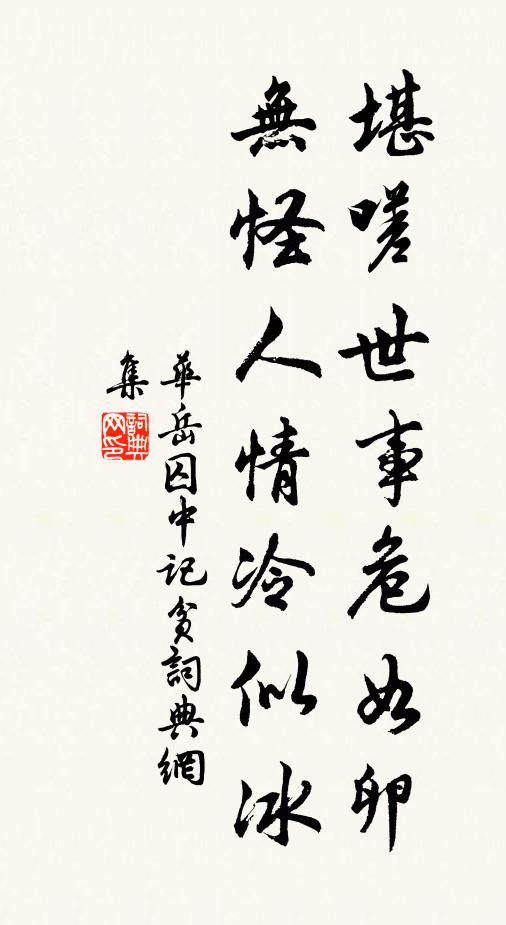 堪嗟世事危如卵
無怪人情冷似冰
華岳囚中記貧詞典網
集
詞典
网印